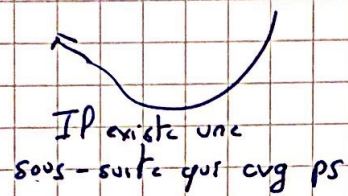 IP existe une
sous-suite qui cvg ps